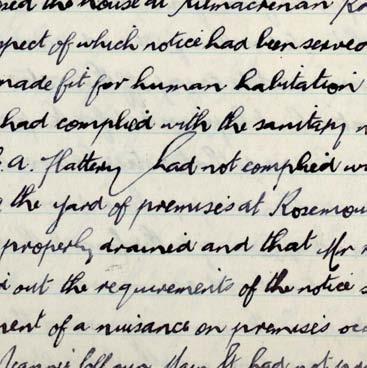 the house at Kilmacrenan Ro
spect of which notice had been served
made fit for human habitation
had complied with the sanitary
a. Flattery had not complied wi
the yard of premises at Rosemou
properly drained and that Mr
out the requirements of the notice s
ment of a nuisance on premises occ
had not